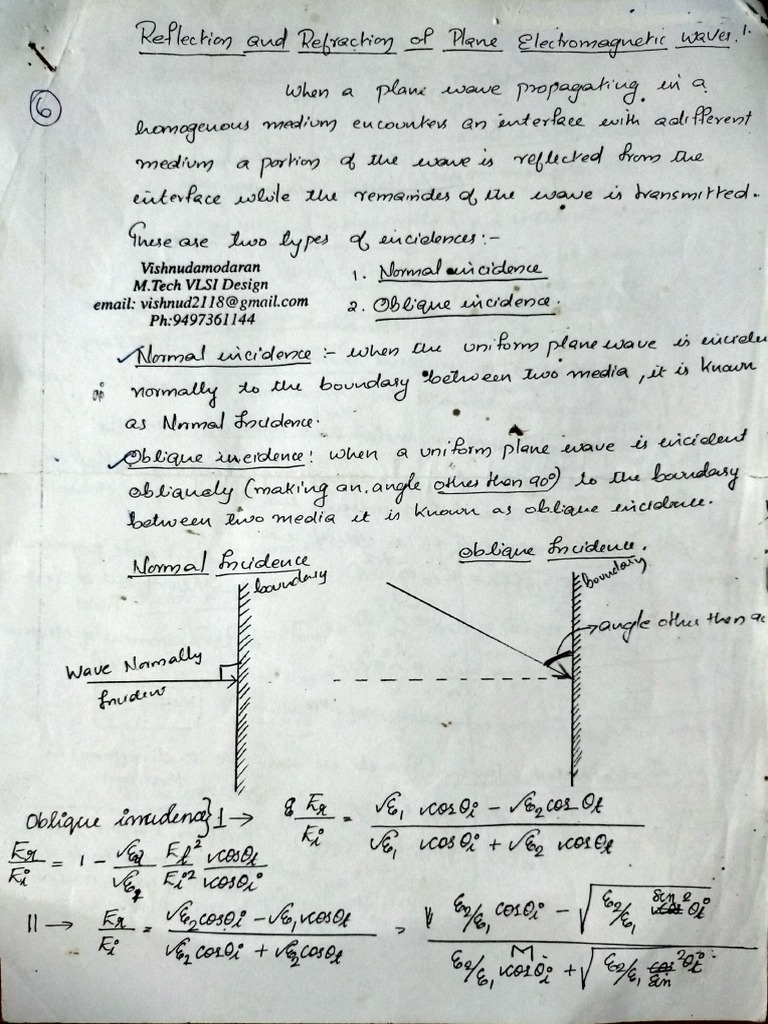 Reflection and Refraction of Plane Electromagnetic Waves. 1.
6
When a plane wave propagating in a
homogenous medium encounters an interface with a different
medium a portion of the wave is reflected from the
interface while the remainder of the wave is transmitted.
These are two types of incidences:-
Vishnudamodaran
M.Tech VLSI Design
email: vishnud2118@gmail.com
Ph:9497361144
1. Normal incidence
2. Oblique incidence.
Normal incidence :- when the uniform plane wave is
normally to the boundary between two media, it is known
as Normal Incidence.
Oblique incidence: when a uniform plane wave is incident
obliquely (making an angle other than 90°) to the boundary
between two media it is known as oblique incidence.
Normal Incidence
Oblique Incidence.
boundary
Boundary
angle other than
Wave Normally
Oblique
1 → Er/Ei = (√ε1 cosθi - √ε2 cosθt) / (√ε1 cosθi + √ε2 cosθt)
Er/Ei = 1 - Et²/Ei² cosθt/cosθi
|| → Er/Ei = (√ε2 cosθi - √ε1 cosθt) / (√ε2 cosθi + √ε2 cosθt) = (ε2/ε1 cosθi - √ε2/ε1 sin²θi) / (ε2/ε1 cosθi + √ε2/ε1 sin²θi)